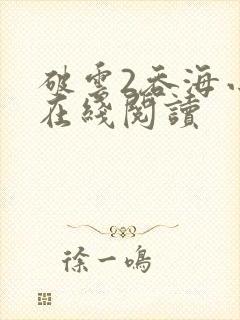 破雲2吞海小
在綫閱讀
徐一鳴